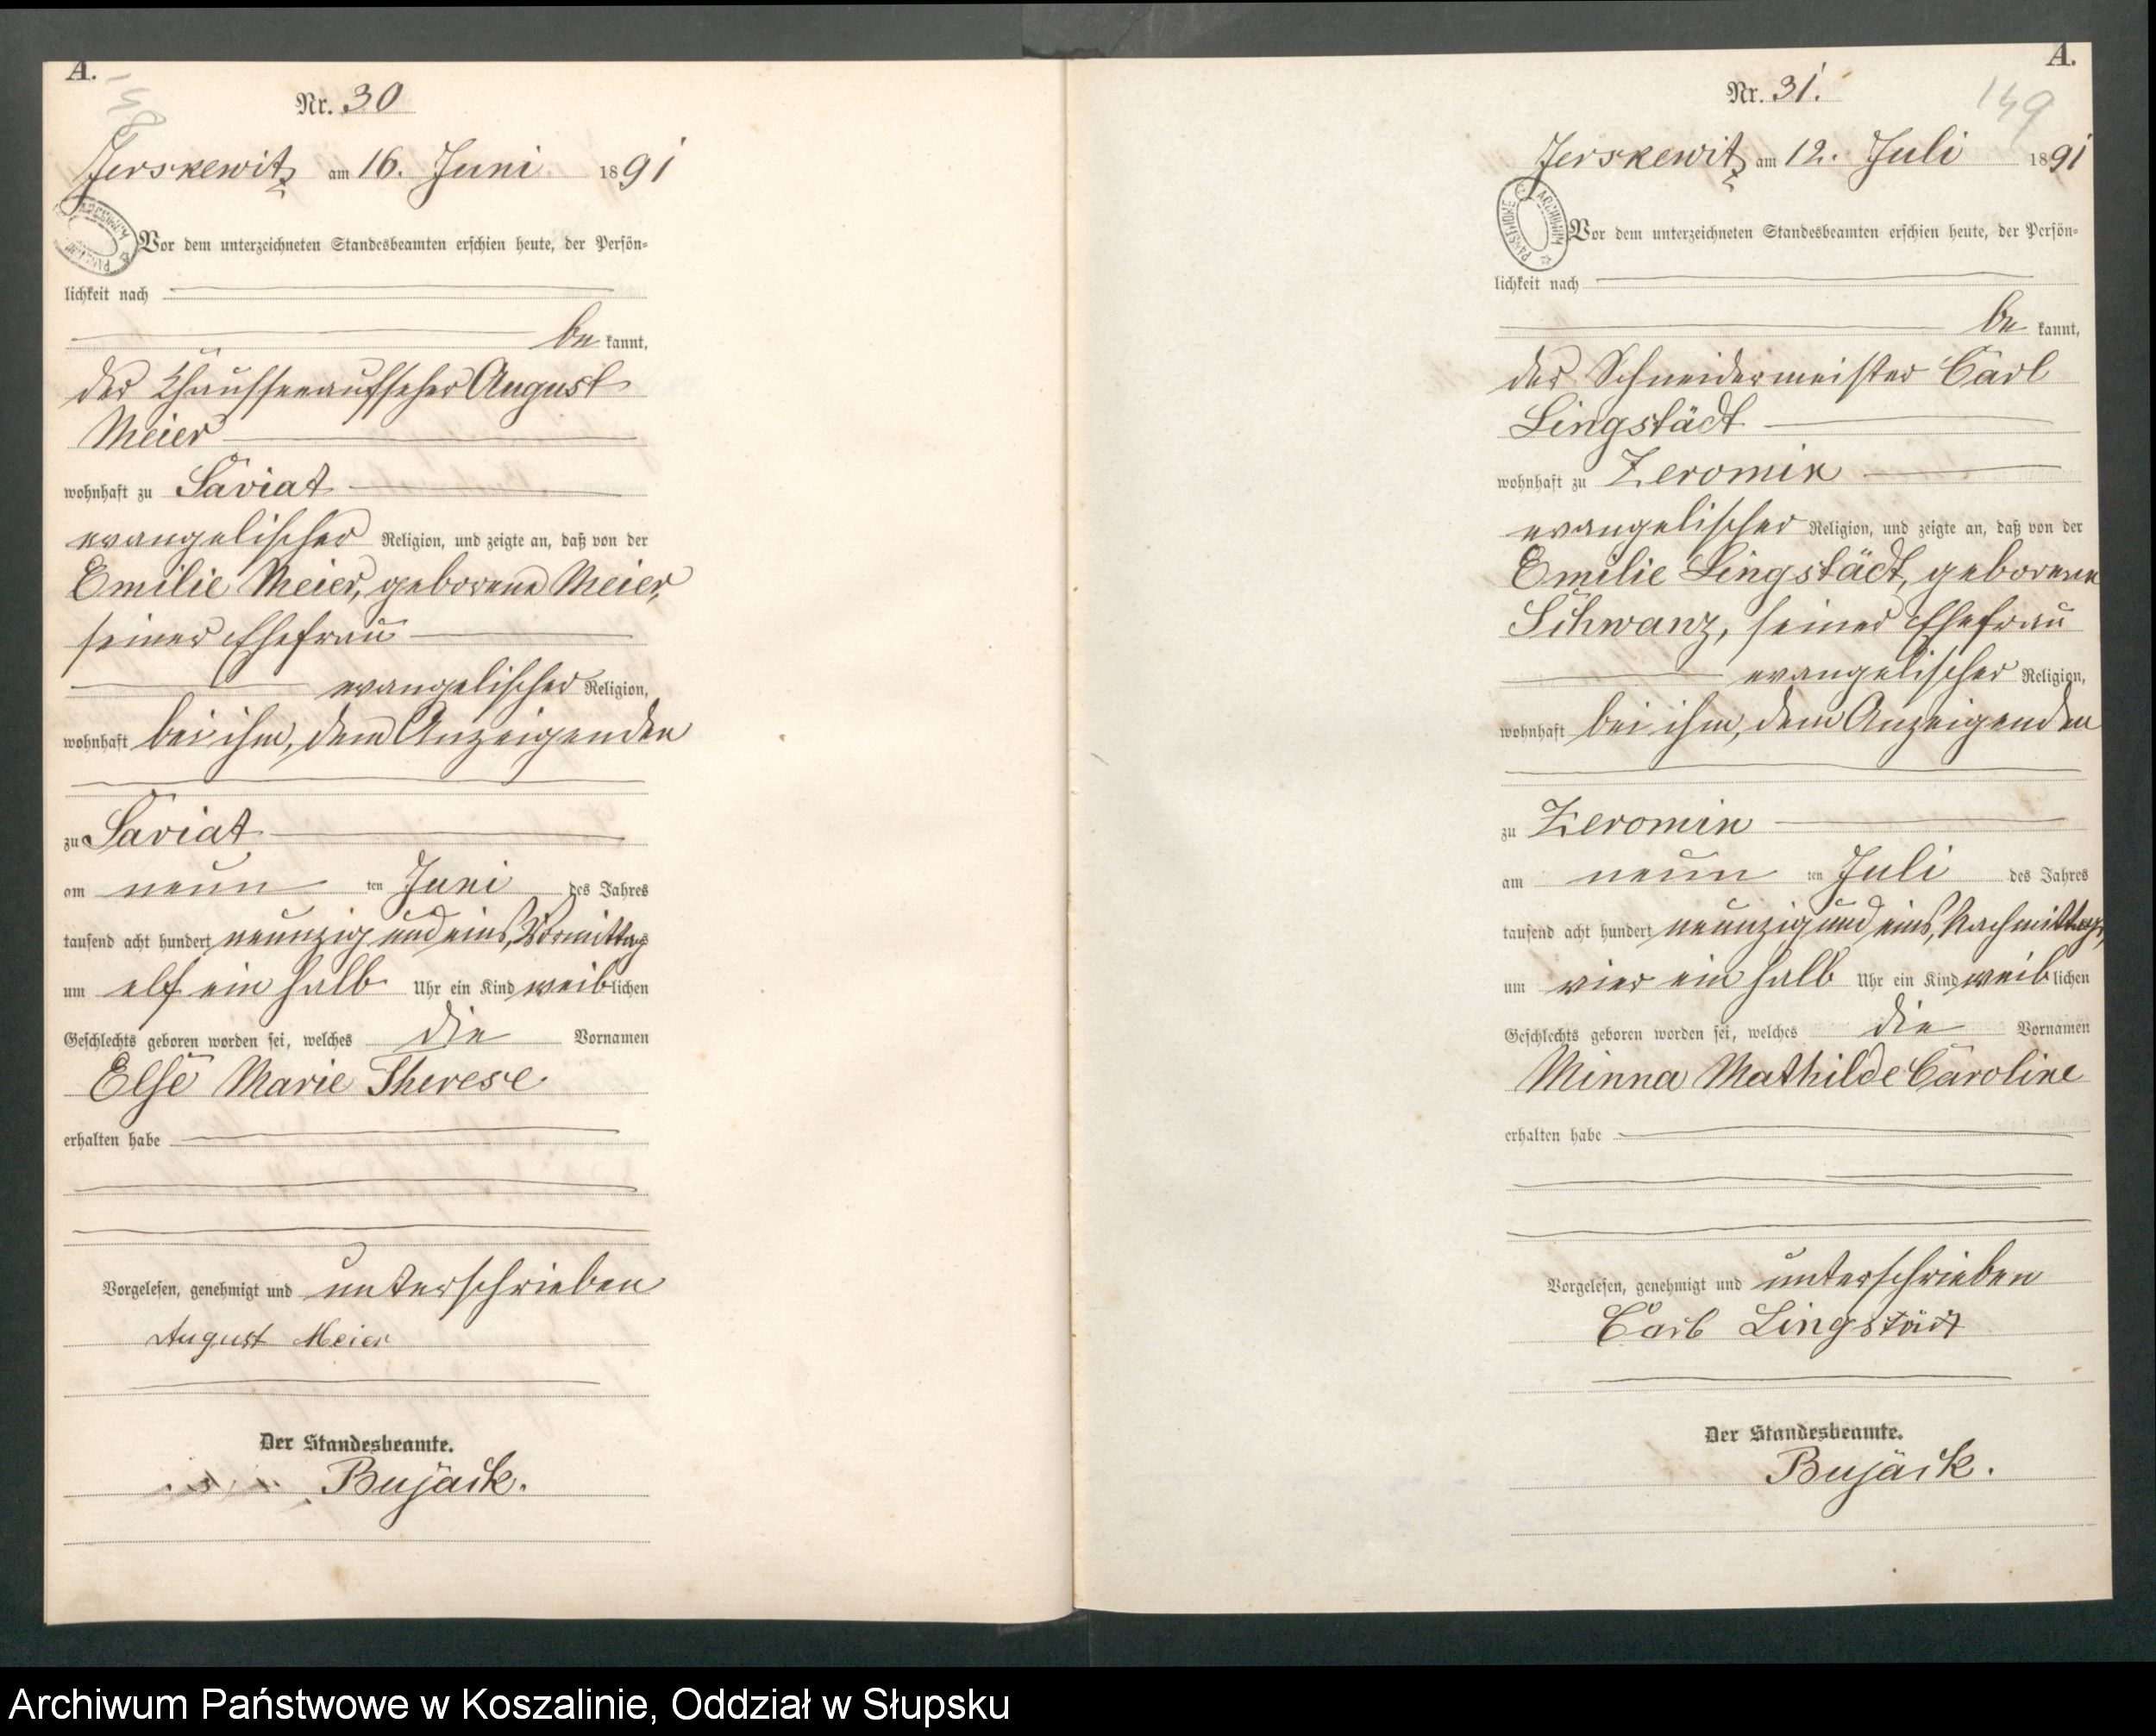 A.
148
Nr. 30
Jerskewitz am 16. Juni 1891
Vor dem unterzeichneten Standesbeamten erschien heute, der Persön-
lichkeit nach
be kannt,
der Chausseeaufseher August
Meier
wohnhaft zu Saviat
evangelischer Religion, und zeigte an, daß von der
Emilie Meier, geborene Meier,
seiner Ehefrau
evangelischer Religion,
wohnhaft bei ihm, dem Anzeigenden
zu Saviat
am neun ten Juni des Jahres
tausend acht hundert neunzig und eins, Vormittags
um elf ein halb Uhr ein Kind weiblichen
Geschlechts geboren worden sei, welches die Vornamen
Else Marie Therese
erhalten habe
Vorgelesen, genehmigt und unterschrieben
August Meier
Der Standesbeamte.
Bujack.
A.
149
Nr. 31.
Jerskewitz am 12. Juli 1891
ARCHIWUM PAŃSTWOWE
Vor dem unterzeichneten Standesbeamten erschien heute, der Persön-
lichkeit nach
be kannt,
der Schneidermeister Carl
Lingstädt
wohnhaft zu Zeromin
evangelischer Religion, und zeigte an, daß von der
Emilie Lingstädt, geborene
Schwanz, seiner Ehefrau
evangelischer Religion,
wohnhaft bei ihm, dem Anzeigenden
zu Zeromin
am neun ten Juli des Jahres
tausend acht hundert neunzig und eins, Nachmittags,
um vier ein halb Uhr ein Kind weiblichen
Geschlechts geboren worden sei, welches die Vornamen
Minna Mathilde Caroline
erhalten habe
Vorgelesen, genehmigt und unterschrieben
Carl Lingstädt
Der Standesbeamte.
Bujack.
Archiwum Państwowe w Koszalinie, Oddział w Słupsku